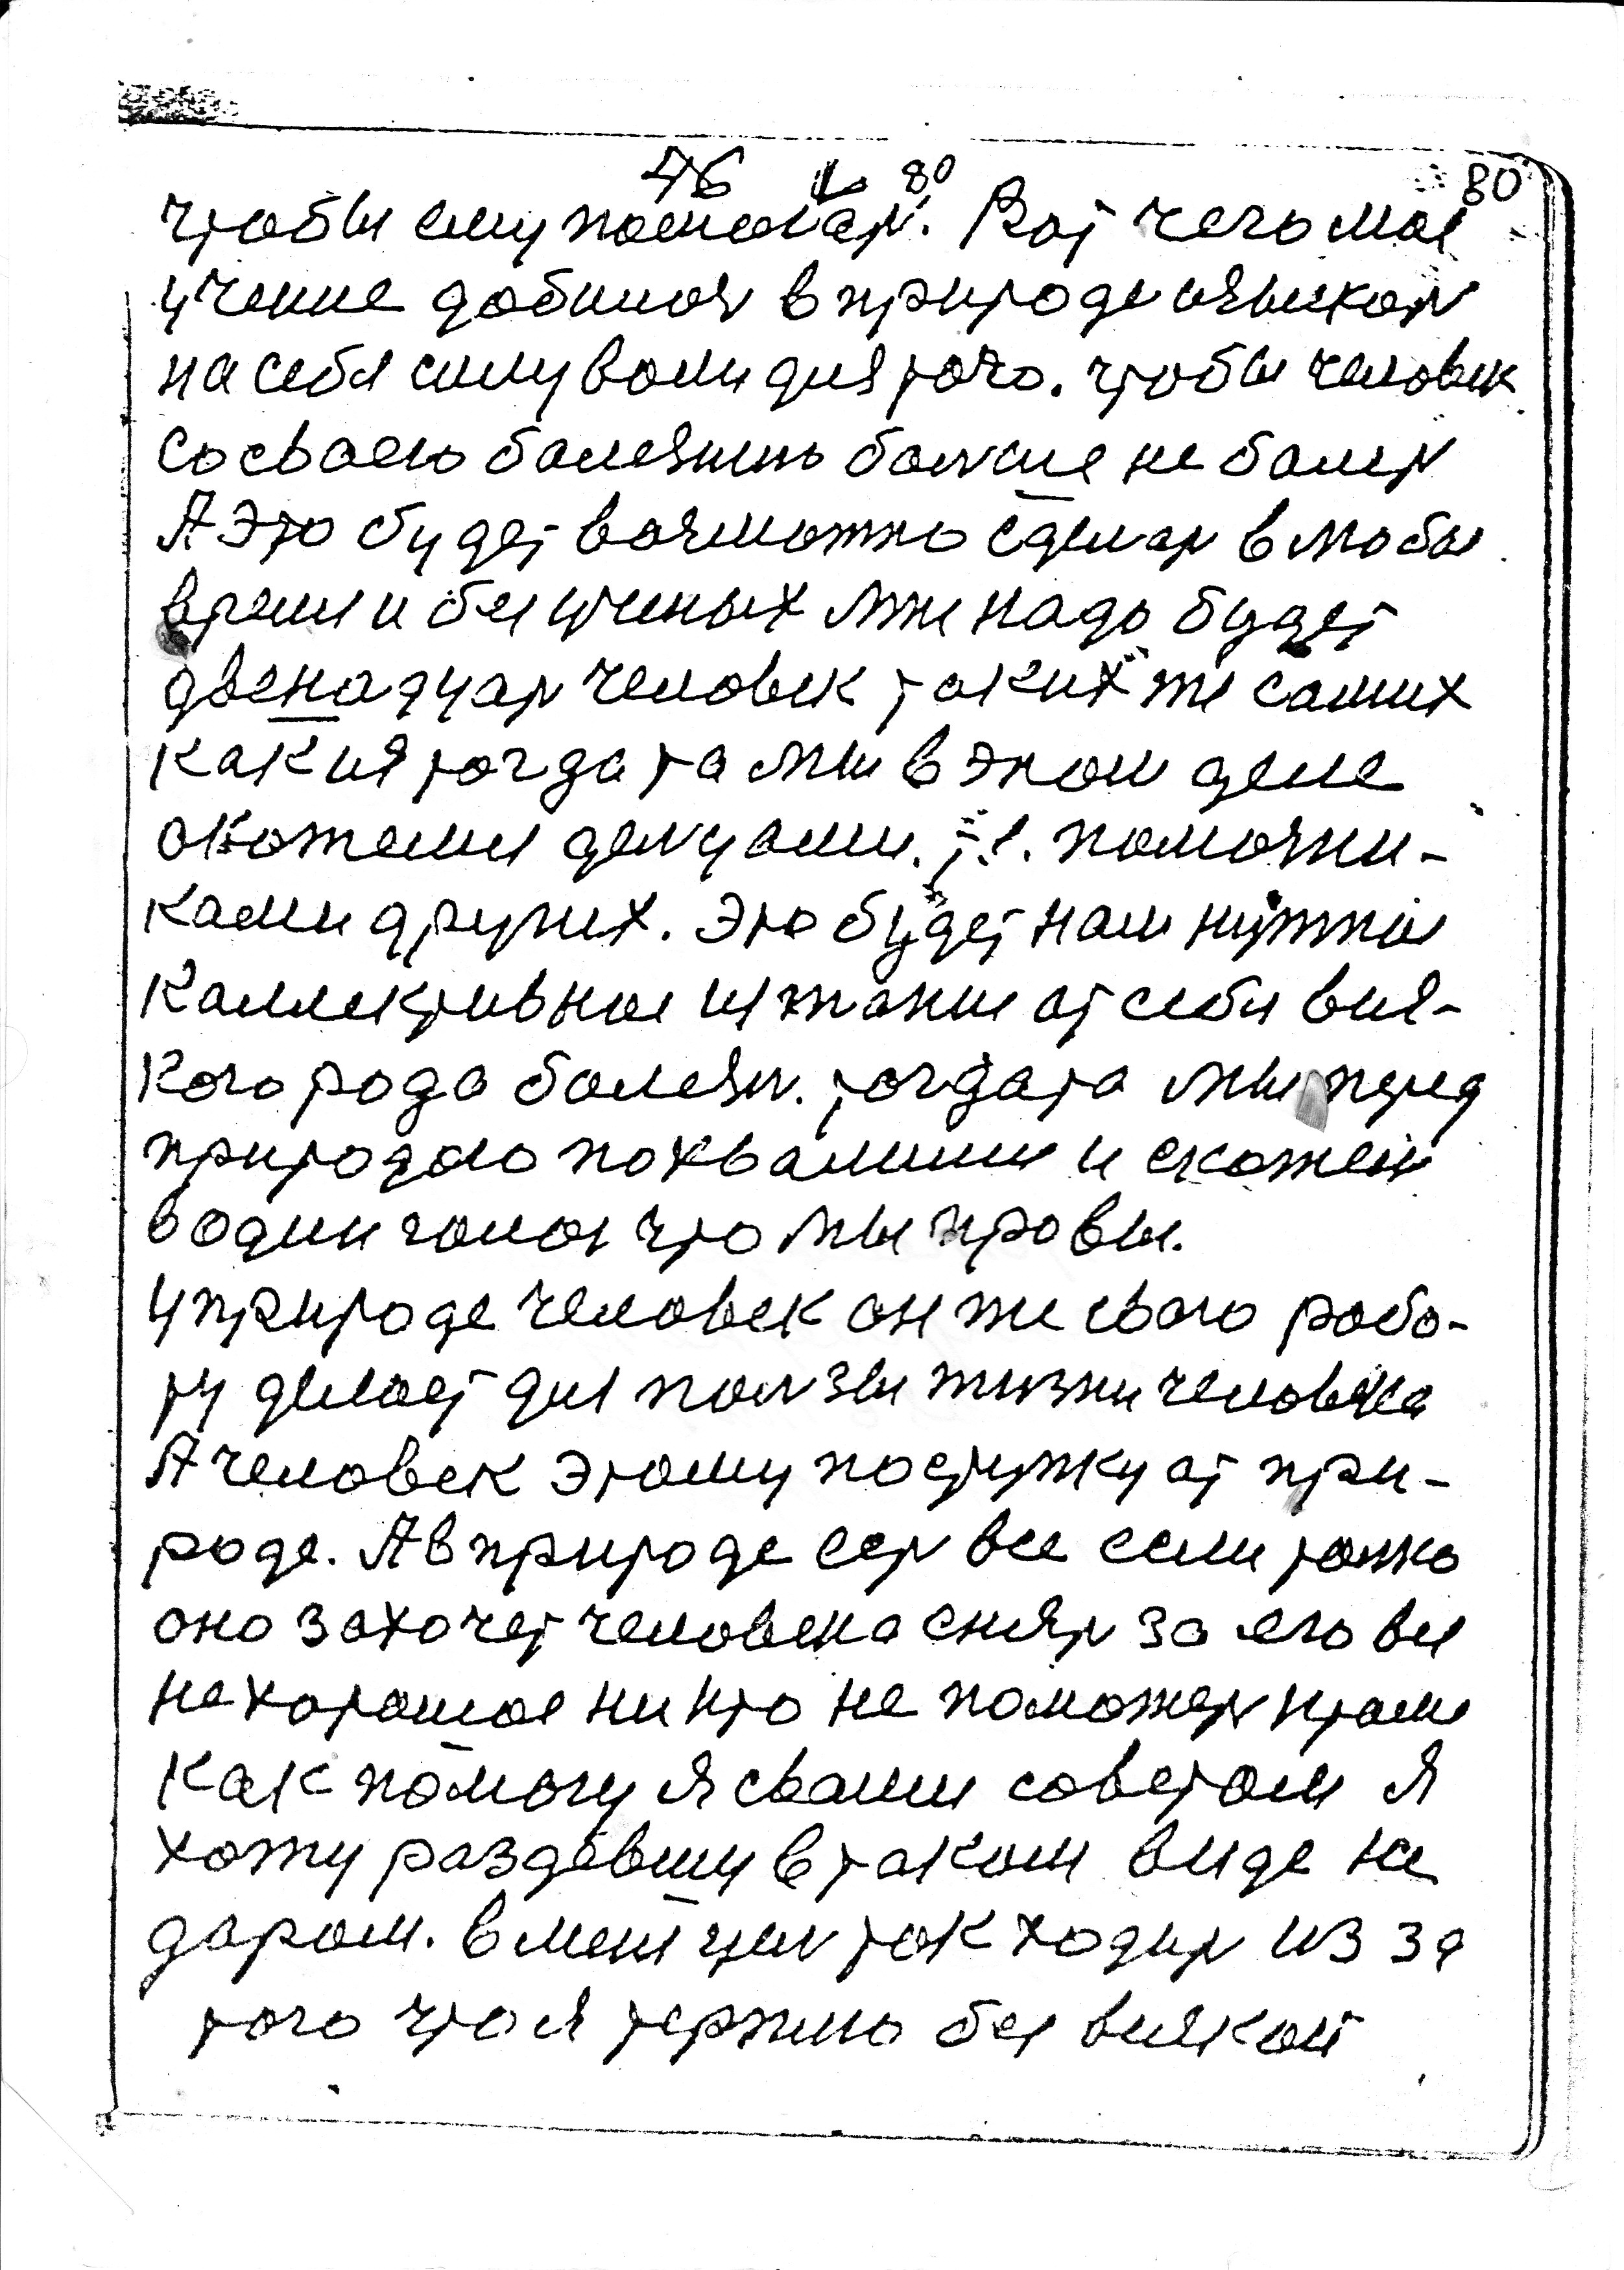 76 80 80
чтобы ему помогать. Вот чего мое
учение добилося в природе изыскать
на себя силу воли для того. чтобы человек
со своею болезнею больше не болеть
А это будет возможно сделать в любы
время и без ученых мне надо будет
двенадцать человек таких же самих
как и я тогдата мы в этом деле
окажемся дельцами. т.е. помочни-
ками других. Это будет нам нужны
коллективное изгнание от себя вся-
кого рода болезни. тогдата мы перед
природою похвалимся и скажем
в один голос что мы правы.
у природе человек он же свою рабо-
ту делает для пользы жизни человека
А человек этому поступку от при-
роде. А в природе есть все если только
оно захочет человека снять за его все
нехорошое никто не поможеть кроме
как помогу я своими советом я
хожу раздевшу в таком виде не
даром. в меня цель так ходить из за
того что я терплю без всякой